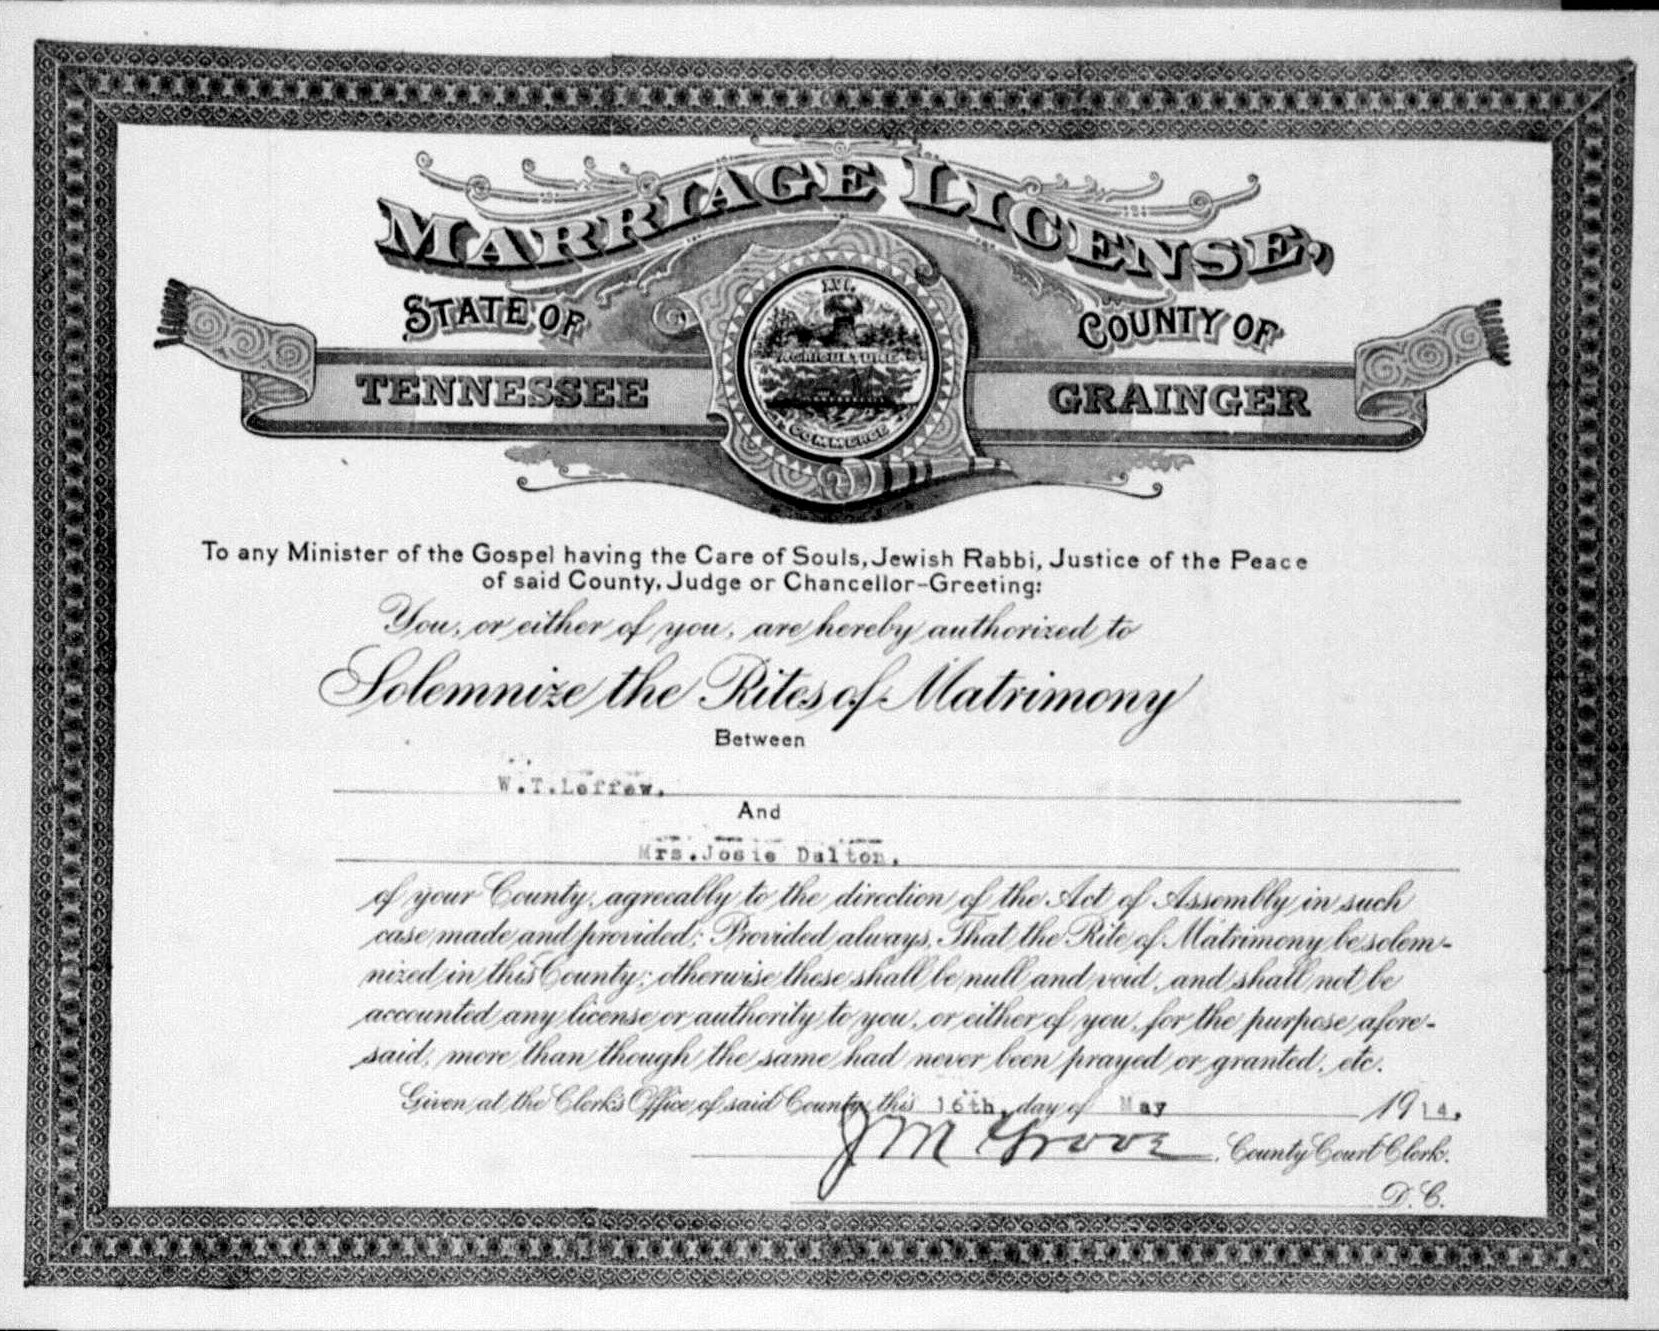 MARRIAGE LICENSE,
STATE OF
COUNTY OF
XVI.
AGRICULTURE
COMMERCE
TENNESSEE
GRAINGER
To any Minister of the Gospel having the Care of Souls, Jewish Rabbi, Justice of the Peace
of said County, Judge or Chancellor-Greeting:
You, or either of you, are hereby authorized to
Solemnize the Rites of Matrimony
Between
W.T.Leffew.
And
Mrs.Josie Dalton,
of your County, agreeably to the direction of the Act of Assembly in such
case made and provided; Provided always, That the Rite of Matrimony be solem-
nized in this County; otherwise these shall be null and void, and shall not be
accounted any license or authority to you, or either of you, for the purpose afore-
said, more than though the same had never been prayed or granted, etc.
Given at the Clerk's Office of said County, this 16th, day of May 1914.
J M Grove, County Court Clerk.
D. C.